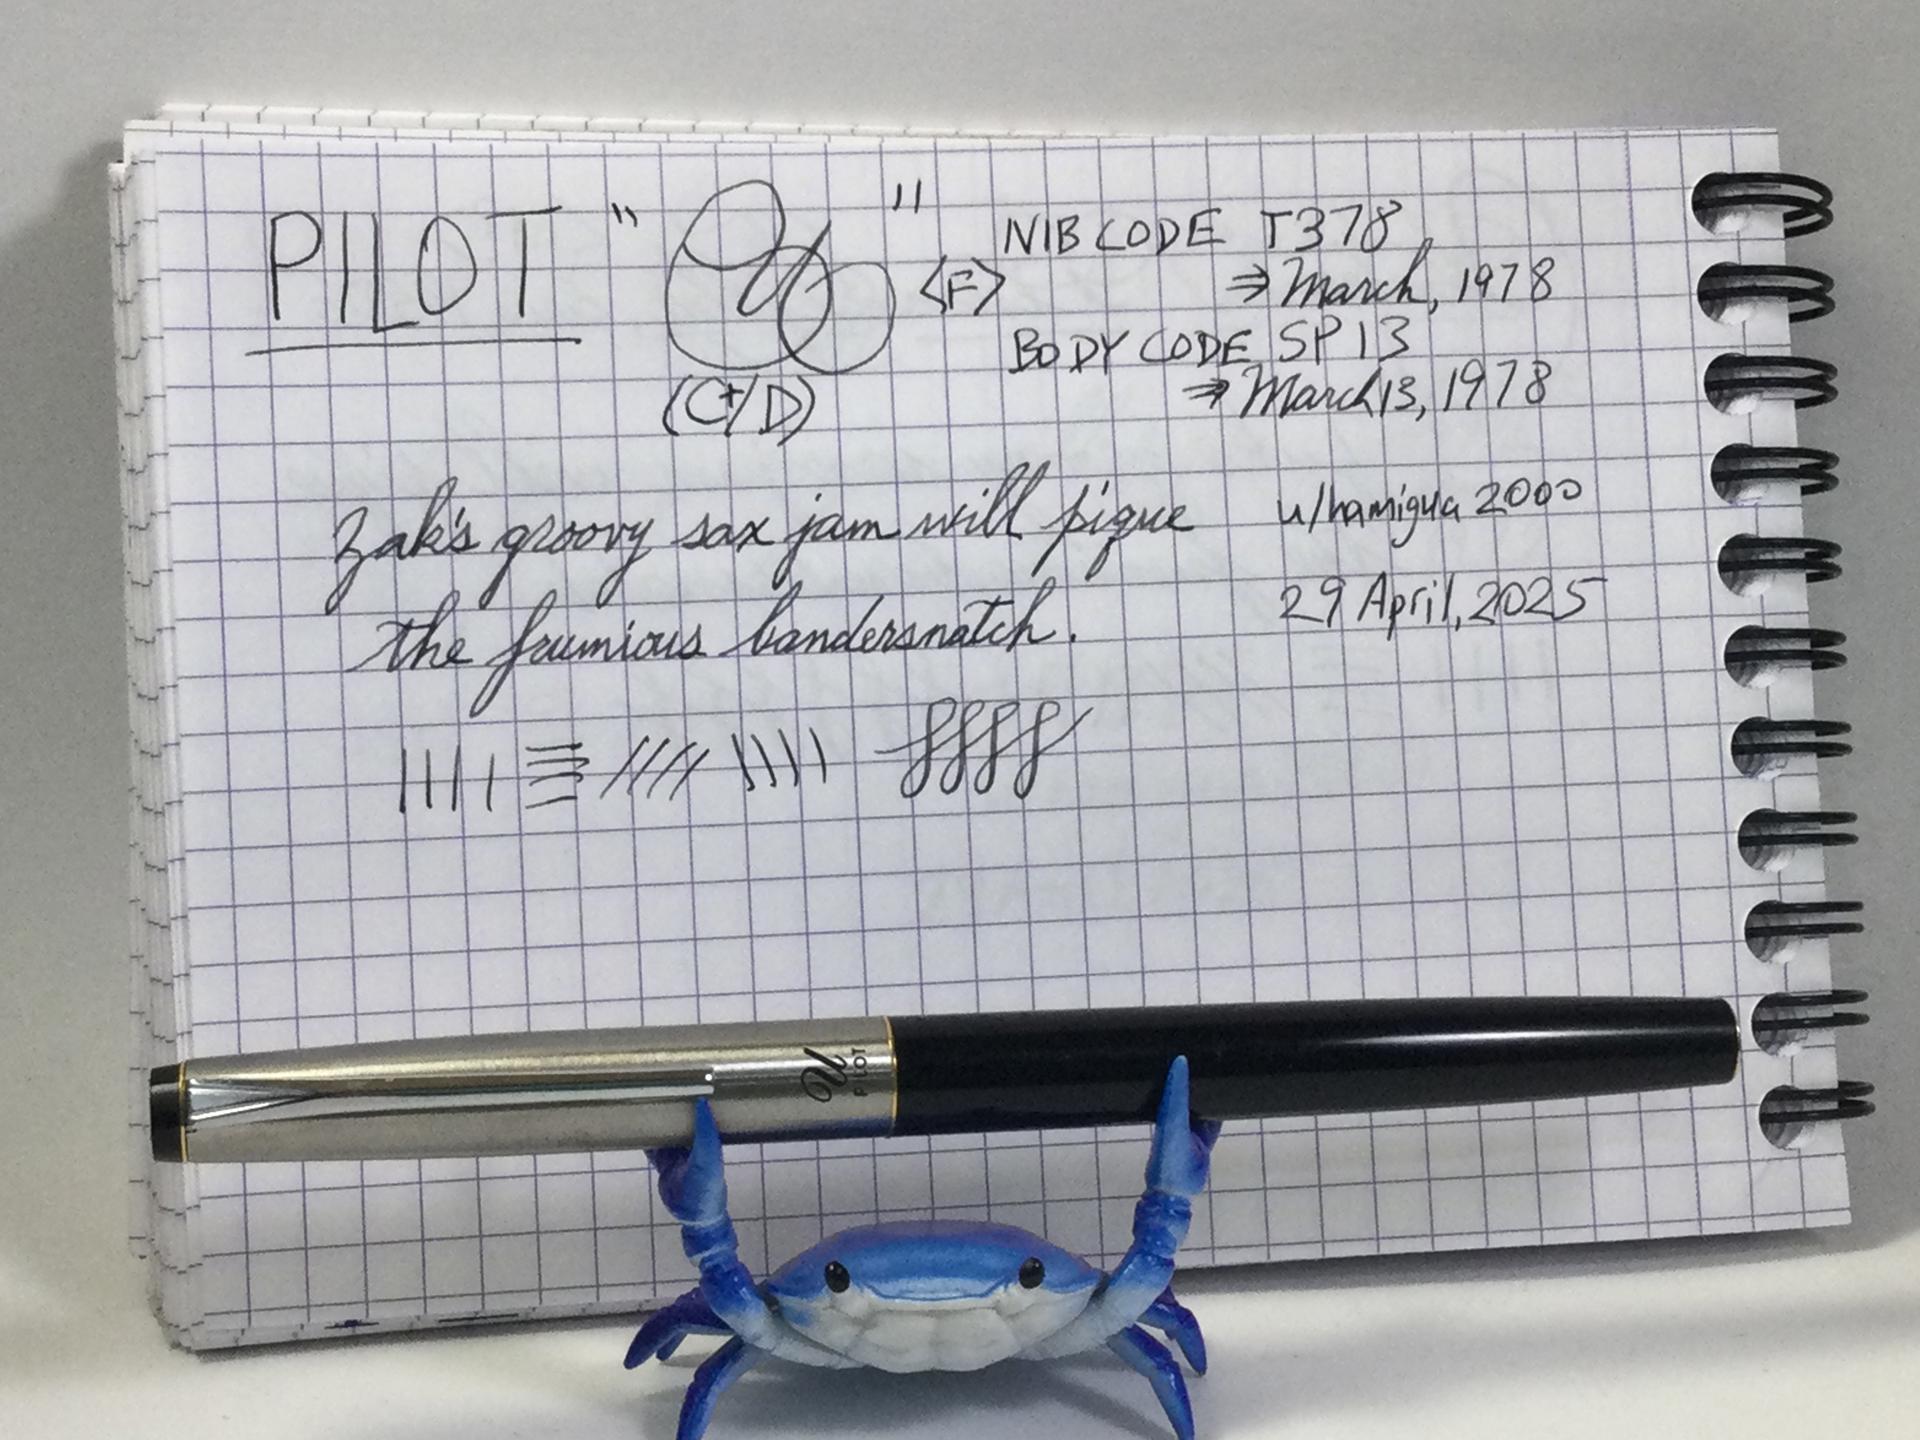 PILOT "U" <F>
(C+/D)
NIB CODE T378
⇒ March, 1978
BODY CODE SP13
⇒ March 13, 1978
Zak's groovy sax jam will pique
the frumious bandersnatch.
u/hamigua2000
29 April, 2025
U
PILOT